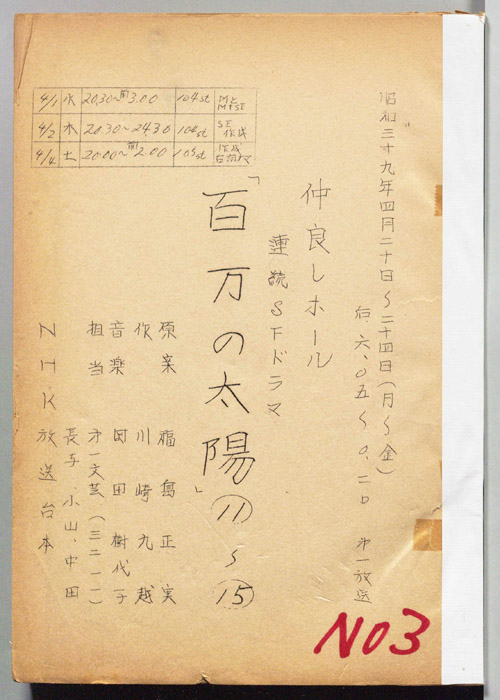 昭和三十九年四月二十日〜二十四日(月〜金)
后.六、〇五〜〇.二〇 第一放送
仲良しホール
連続SFドラマ
「百万の太陽」⑪〜⑮
原案 福島正実
作 川崎九越
音楽 岡田樹代子
担当 第一文芸(三二一一)
長与、小山、中田
NHK放送台本
4/1 水 20.30〜前3.00 104st
4/2 木 20.30〜24.30 106st SE作成
4/4 土 20.00〜前2.00 105st
NO3